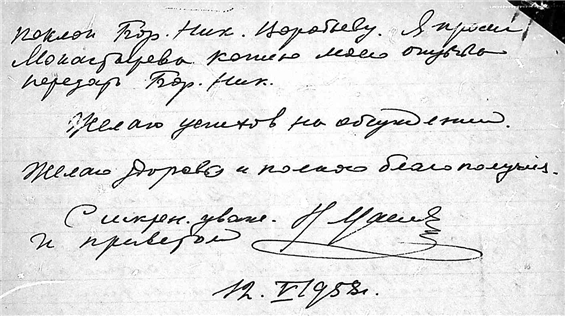 поклон Бор. Ник. Воробьеву. Я просил
Монастырева копию моего отзыва
передать Бор. Ник.
Желаю успехов на обсуждении.
Желаю здоровья и полного благополучия.
С искрен. уваж.
и приветом
12. V 1958 г.